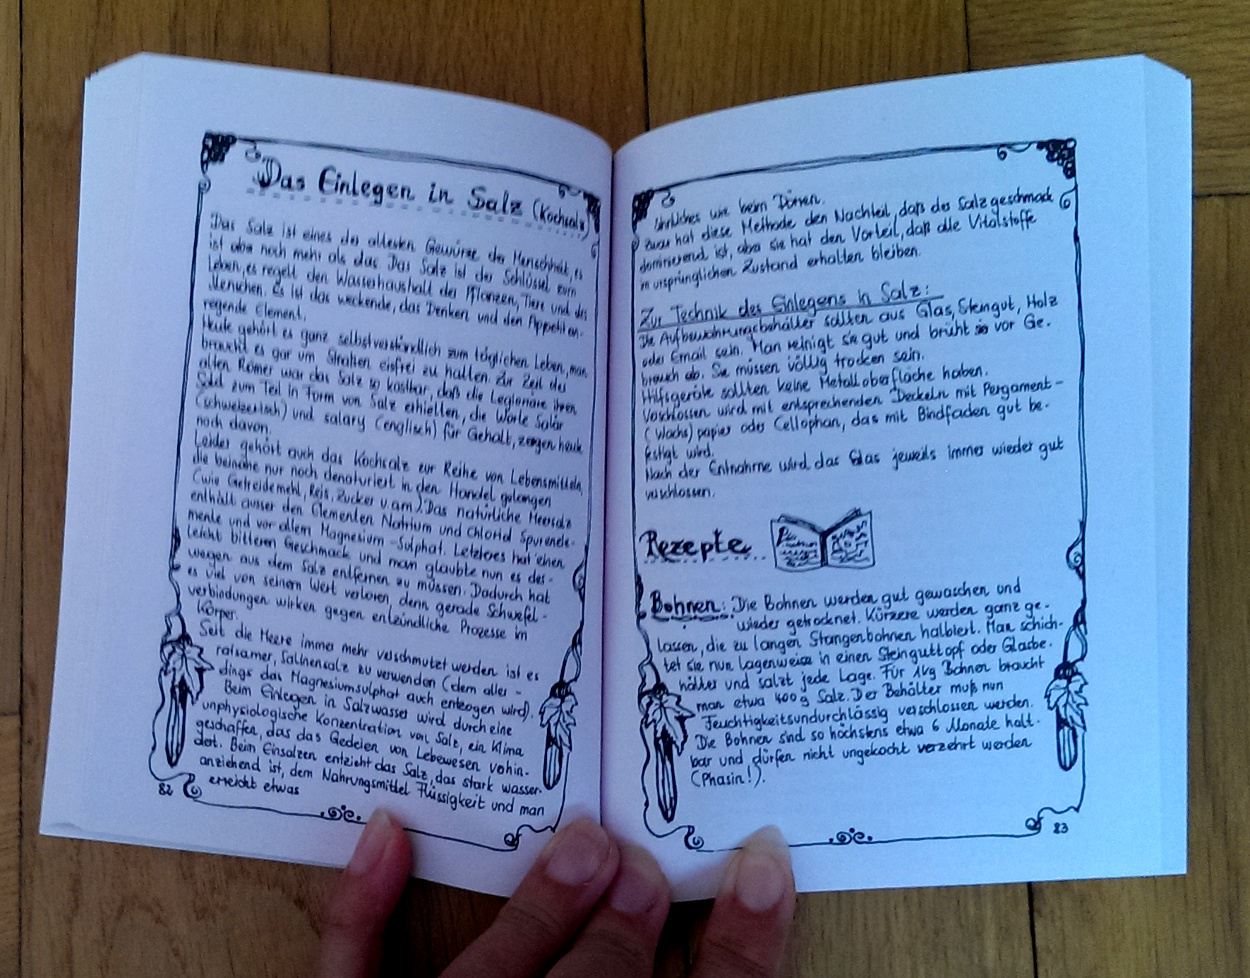 Das Einlegen in Salz (Kochsalz)
Das Salz ist eines der ältesten Gewürze der Menschheit, es
ist aber noch mehr als das. Das Salz ist der Schlüssel zum
Leben, es regelt den Wasserhaushalt der Pflanzen, Tiere und des
Menschen. Es ist das weckende, das Denken und den Appetit an-
regende Element.
Heute gehört es ganz selbstverständlich zum täglichen Leben, man
braucht es gar um Straßen eisfrei zu halten. Zur Zeit der
alten Römer war das Salz so kostbar, daß die Legionäre ihren
Sold zum Teil in Form von Salz erhielten, die Worte Salär
(schweizerisch) und salary (englisch) für Gehalt, zeugen heute
noch davon.
Leider gehört auch das Kochsalz zur Reihe von Lebensmitteln,
die beinahe nur noch denaturiert in den Handel gelangen
(wie Getreidemehl, Reis, Zucker u.a.m.). Das natürliche Meersalz
enthält ausser den Elementen Natrium und Chlorid Spurenele-
mente und vor allem Magnesium-Sulphat. Letzteres hat einen
leicht bitteren Geschmack und man glaubte nun es des-
wegen aus dem Salz entfernen zu müssen. Dadurch hat
es viel von seinem Wert verloren denn gerade Schwefel-
verbindungen wirken gegen entzündliche Prozesse im
Körper.
Seit die Meere immer mehr verschmutzt werden ist es
ratsamer, Salinensalz zu verwenden (dem aller-
dings das Magnesiumsulphat auch entzogen wird).
Beim Einlegen in Salzwasser wird durch eine
unphysiologische Konzentration von Salz, ein Klima
geschaffen, das das Gedeien von Lebewesen vehin-
dert. Beim Einsalzen entzieht das Salz, das stark wasser-
anziehend ist, dem Nahrungsmittel Flüssigkeit und man
erreicht etwas
82
ähnliches wie beim Dörren.
Zwar hat diese Methode den Nachteil, daß der Salzgeschmack
dominierend ist, aber sie hat den Vorteil, daß alle Vitalstoffe
im ursprünglichen Zustand erhalten bleiben.
Zur Technik des Einlegens in Salz:
Die Aufbewahrungsbehälter sollten aus Glas, Steingut, Holz
oder Email sein. Man reinigt sie gut und brüht sie vor Ge-
brauch ab. Sie müssen völlig trocken sein.
Hilfsgeräte sollten keine Metalloberfläche haben.
Verschlossen wird mit entsprechenden Deckeln mit Pergament-
(Wachs) papier oder Cellophan, das mit Bindfaden gut be-
festigt wird.
Nach der Entnahme wird das Glas jeweils immer wieder gut
verschlossen.
Rezepte
Bohnen: Die Bohnen werden gut gewaschen und
wieder getrocknet. Kürzere werden ganz ge-
lassen, die zu langen Stangenbohnen halbiert. Man schich-
tet sie nun lagenweise in einen Steinguttopf oder Glasbe-
hälter und salzt jede Lage. Für 1kg Bohnen braucht
man etwa 400g Salz. Der Behälter muß nun
Feuchtigkeitsundurchlässig verschlossen werden.
Die Bohnen sind so höchstens etwa 6 Monate halt-
bar und dürfen nicht ungekocht verzehrt werden
(Phasin!).
83